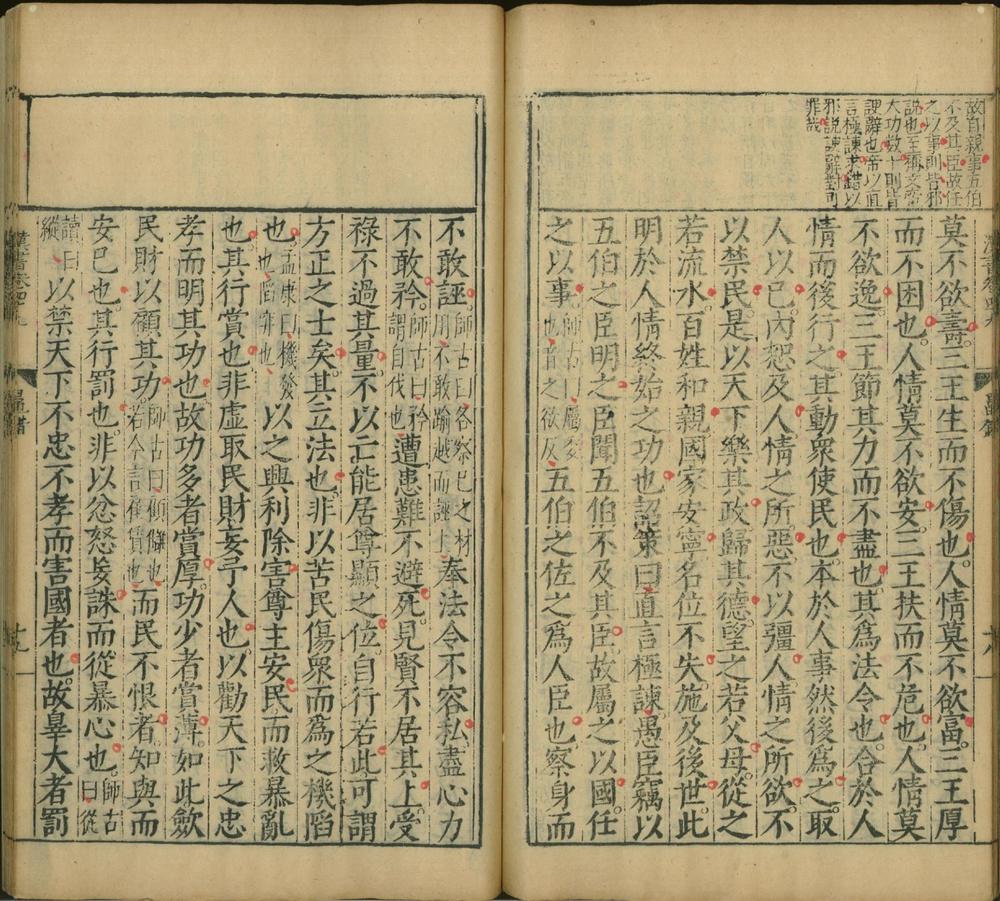 故自親事五伯
不及其臣故任
之以事則皆邪
說也至謂文帝
大功數十則皆
諛辭也帝以直
言極諫求錯以
邪說諛辭對可
罪哉
莫不欲壽。三王生而不傷也。人情莫不欲富。三王厚
而不困也。人情莫不欲安。三王扶而不危也。人情莫
不欲逸。三王節其力而不盡也。其爲法令也。合於人
情而後行之。其動衆使民也。本於人事然後爲之。取
人以己。內恕及人。情之所惡。不以彊人。情之所欲。不
以禁民。是以天下樂其政。歸其德。望之若父母。從之
若流水。百姓和親。國家安寧。名位不失。施及後世。此
明於人情終始之功也。詔策曰。直言極諫。愚臣竊以
五伯之臣明之。臣聞五伯不及其臣。故屬之以國。任
之以事。師古曰屬委也音之欲反五伯之佐之爲人臣也。察身而
不敢誣。師古曰各察己之材用不敢踰越而誣上奉法令不容私。盡心力
不敢矜。師古曰矜謂自伐也遭患難不避死。見賢不居其上。受
祿不過其量。不以亡能居尊顯之位。自行若此。可謂
方正之士矣。其立法也。非以苦民傷衆而爲之機陷
也。孟康曰機發也陷穽也以之興利除害。尊主安民而救暴亂
也。其行賞也。非虛取民財。妄予人也。以勸天下之忠
孝而明其功也。故功多者賞厚。功少者賞薄。如此。斂
民財以顧其功。師古曰顧讎也若今言雇賃也而民不恨者。知與而
安己也。其行罰也。非以忿怒妄誅而從暴心也。師古曰從
讀曰縱以禁天下不忠不孝而害國者也。故辠大者罰
漢書卷四十九 鼂錯 十九